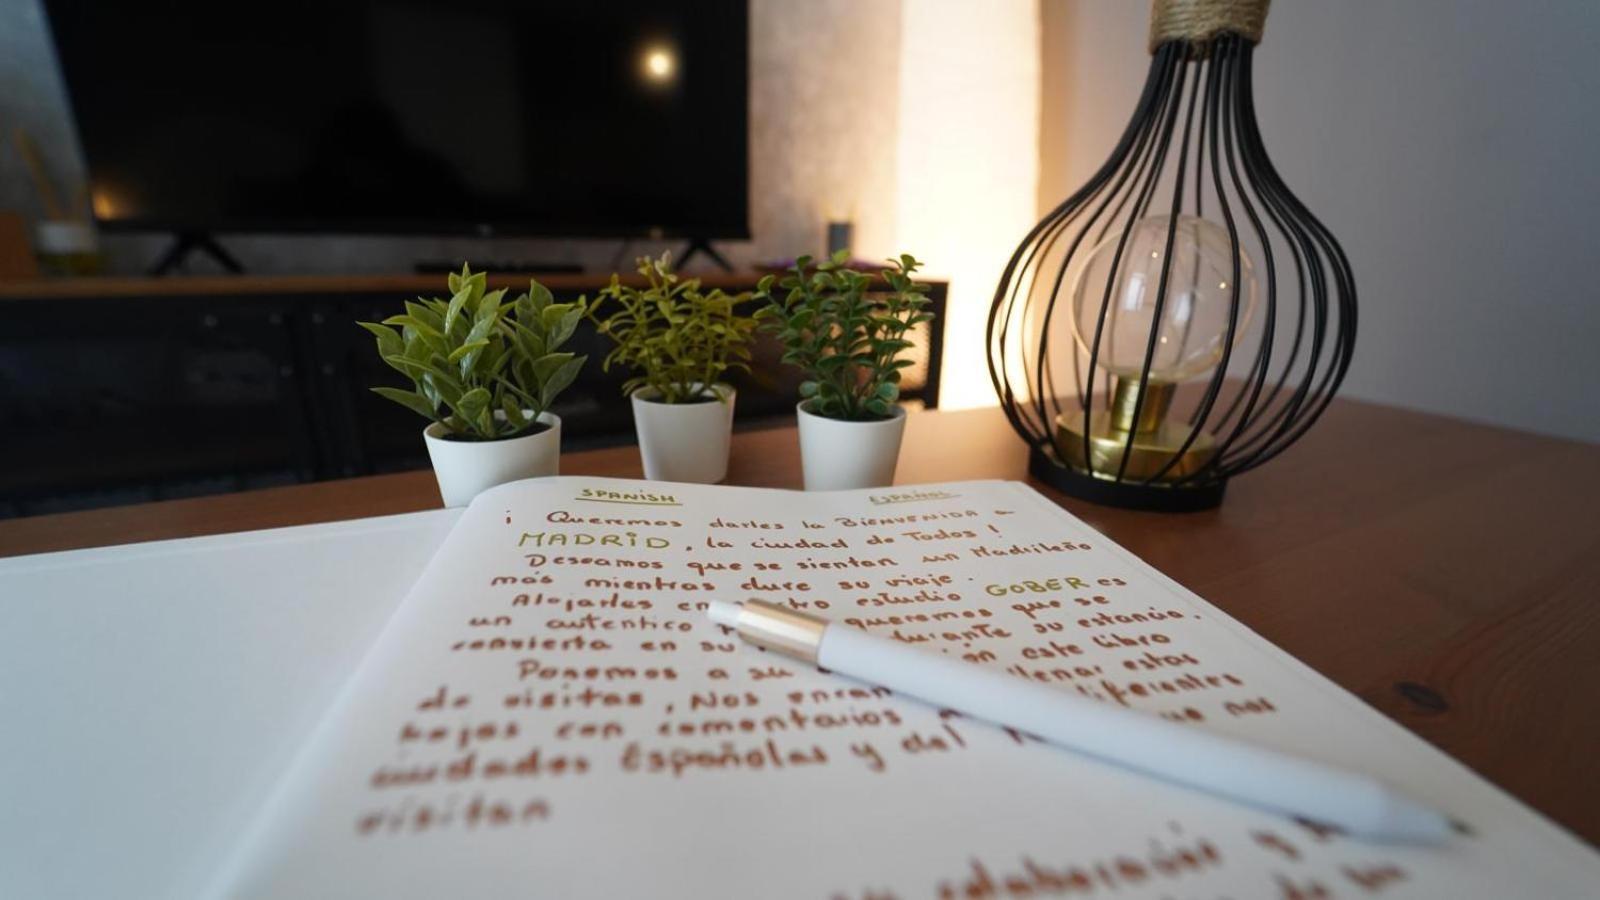 SPANISH ESPAÑOL
¡ Queremos darles la BIENVENIDA a
MADRID, la ciudad de Todos !
Deseamos que se sientan un Madrileño
más mientras dure su viaje.
Alojarles en estudio GOBER es
un autentico queremos que se
convierta en su durante su estancia.
Ponemos a su este libro
de visitas, Nos llenar estas
hojas con comentarios diferentes
ciudades Españolas y del que nos
visitan
su colaboración y